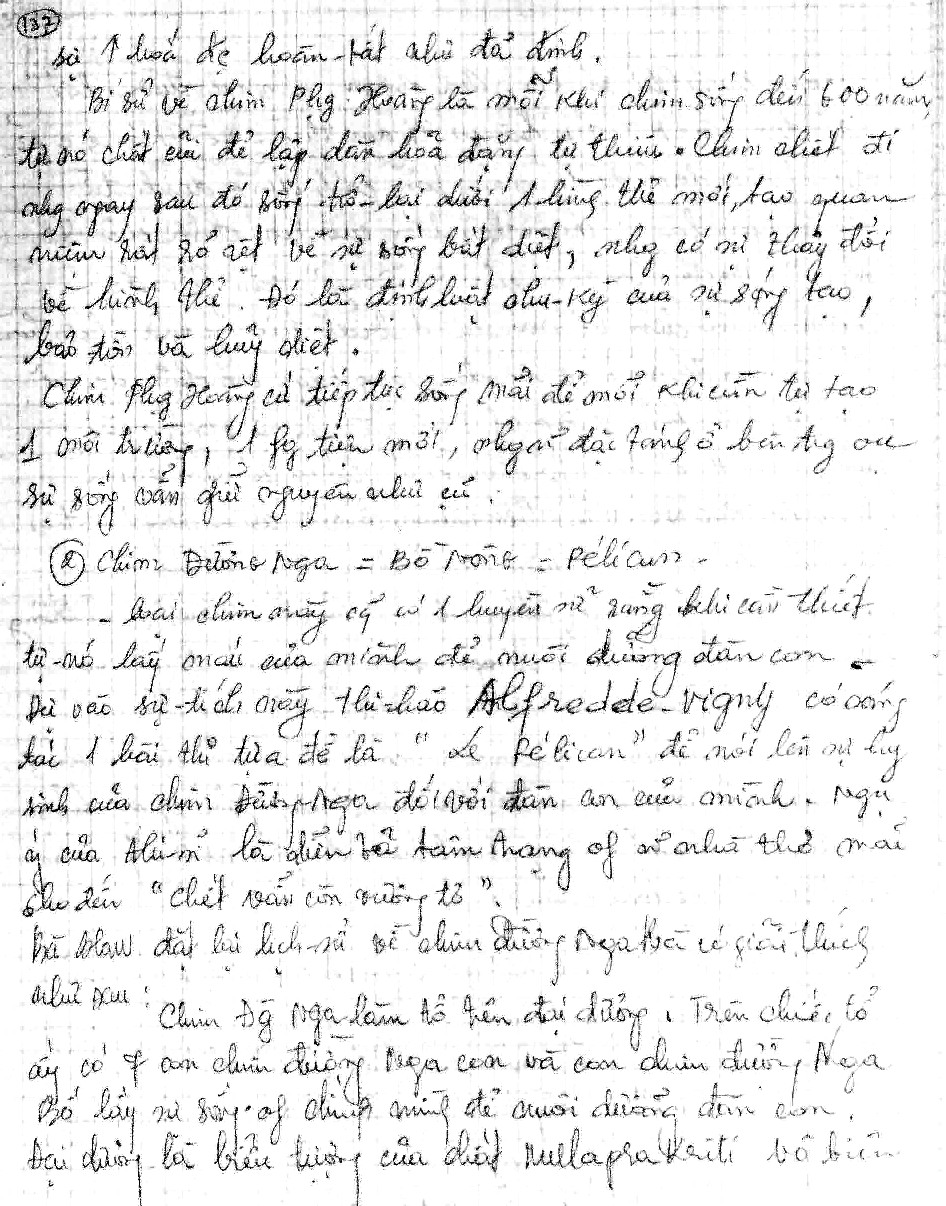 137
sự ↑ hoá đc hoàn-tất như đã định.
Bí sử về chim Phg Hoàng là mỗi khi chim sống đến 600 năm,
tự nó chất củi để lập dàn hoả đặng tự thiêu. Chim chết đi
nhg ngay sau đó sống trở-lại dưới 1 hình thể mới, tạo quan
niệm rất rỏ rệt về sự sống bất diệt, nhg có sự thay đổi
về hình thể. Đó là định luật chu-kỳ của sự sáng tạo,
bảo tồn và huỷ diệt.
Chim Phg Hoàng cứ tiếp tục sống mãi để mỗi khi cần tự tạo
1 môi trường, 1 fg tiện mới, nhg đặc tánh ở bên trg
sự sống vẫn giữ nguyên như cũ.
② Chim Đường Nga = Bồ Nông = Pélican.
- Loại chim này cg có 1 huyền sử rằng khi cần thiết
tự-nó lấy máu của mình để nuôi dưỡng đàn con.
Dự vào sự-tích này thi-hào Alfredde-Vigny có sáng
tác 1 bài thơ tựa đề là "Le Pélican" để nói lên sự hy
sinh của chim Đường-Nga đối với đàn con của mình. Ngụ
ý của thi-sĩ là diễn tả tâm trạng of nhà thơ mãi
cho đến "chết vẫn còn vương tơ".
Bà Blaw đặt lại lịch-sử về chim đường Nga và có giải thích
như sau:
Chim Đg Nga làm tổ trên đại dương. Trên chiếc tổ
ấy có 7 con chim đường Nga con và con chim đường Nga
Bố lấy sự sống of chính mình để nuôi dưỡng đàn con.
Đại dương là biểu tượng của chất Mullaprakriti vô biên